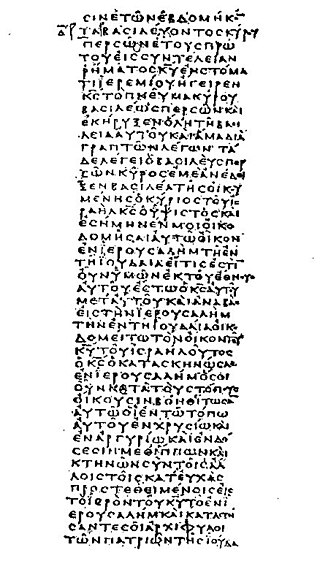 ΣΙΝΕΤΩΝΕΒΔΟΜΗΚ̅
ΤΑΒΑΣΙΛΕΥΟΝΤΟΣΚΥΡΟΥ
ΠΕΡΣΩΝΕΤΟΥΣΠΡΩ
ΤΟΥΕΙΣΣΥΝΤΕΛΕΙΑΝ
ΡΗΜΑΤΟΣΚ̅Υ̅ΕΝΣΤΟΜΑ
ΤΙΙΕΡΕΜΙΟΥΗΓΕΙΡΕΝ
Κ̅Σ̅ΤΟΠΝΕΥΜΑΚΥΡΟΥ
ΒΑΣΙΛΕΩΣΠΕΡΣΩΝΚΑΙ
ΕΚΗΡΥΞΕΝΟΛΗΤΗΒΑΣΙ
ΛΕΙΑΑΥΤΟΥΚΑΙΑΜΑΔΙΑ
ΓΡΑΠΤΩΝΛΕΓΩΝΤΑ
ΔΕΛΕΓΕΙΟΒΑΣΙΛΕΥΣΠΕΡ
ΣΩΝΚΥΡΟΣΕΜΕΑΝΕΔΙ
ΞΕΝΒΑΣΙΛΕΑΤΗΣΟΙΚΟΥ
ΜΕΝΗΣΟΚΥΡΙΟΣΤΟΥΙΣ
ΡΑΗΛΚ̅Σ̅ΟΥΨΙΣΤΟΣΚΑΙ
ΕΣΗΜΗΝΕΝΜΟΙΟΙΚΟ
ΔΟΜΗΣΑΙΑΥΤΩΟΙΚΟΝ
ΕΝΙΕΡΟΥΣΑΛΗΜΤΗΕΝ
ΤΗΙΟΥΔΑΙΑΕΙΤΙΣΕΣΤΙ̅
ΟΥΝΥΜΩΝΕΚΤΟΥΕΘΝΟΥΣ
ΑΥΤΟΥΕΣΤΩΟΚ̅Σ̅ΑΥΤΟΥ
ΜΕΤΑΥΤΟΥΚΑΙΑΝΑΒΑΣ
ΕΙΣΤΗΝΙΕΡΟΥΣΑΛΗΜ
ΤΗΝΕΝΤΗΙΟΥΔΑΙΑΟΙΚΟ
ΔΟΜΕΙΤΩΤΟΝΟΙΚΟΝΤΟΥ
Κ̅Υ̅ΤΟΥΙΣΡΑΗΛΟΥΤΟΣ
ΟΚ̅Σ̅ΟΚΑΤΑΣΚΗΝΩΣΑΣ
ΕΝΙΕΡΟΥΣΑΛΗΜΟΣΟΙ
ΟΥΝΚΑΤΑΤΟΥΣΤΟΠΟΥΣ
ΟΙΚΟΥΣΙΝΒΟΗΘΕΙΤΩΣΑΝ
ΑΥΤΩΟΙΕΝΤΩΤΟΠΩ
ΑΥΤΟΥΕΝΧΡΥΣΙΩΚΑΙ
ΕΝΑΡΓΥΡΙΩΚΑΙΕΝΔΟ
ΣΕΣΙΝΜΕΘΙΠΠΩΝΚΑΙ
ΚΤΗΝΩΝΣΥΝΤΟΙΣΑΛ
ΛΟΙΣΤΟΙΣΚΑΤΕΥΧΑΣ
ΠΡΟΣΤΕΘΕΙΜΕΝΟΙΣΕΙΣ
ΤΟΙΕΡΟΝΤΟΥΚ̅Υ̅ΤΟΕΝΙ
ΕΡΟΥΣΑΛΗΜΚΑΙΚΑΤΑΣΤΗ
ΣΑΝΤΕΣΟΙΑΡΧΙΦΥΛΟΙ
ΤΩΝΠΑΤΡΙΩΝΤΗΣΙΟΥΔΑ